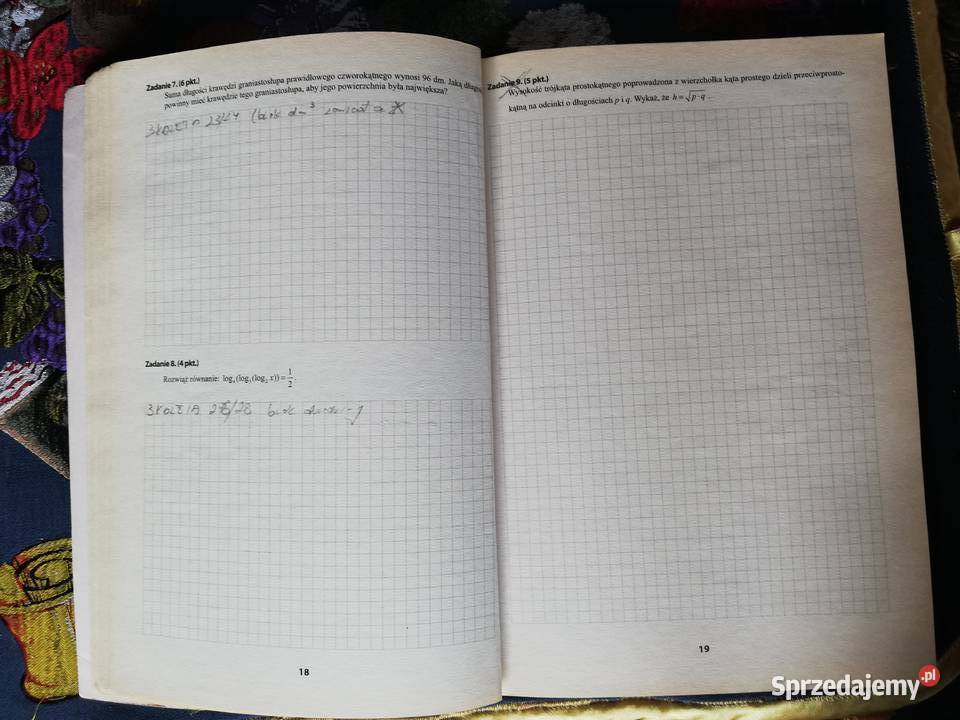 Zadanie 7. (6 pkt.)
Suma długości krawędzi graniastosłupa prawidłowego czworokątnego wynosi 96 dm. Jaką długość
powinny mieć krawędzie tego graniastosłupa, aby jego powierzchnia była największa?
Zadanie 8. (4 pkt.)
Rozwiąż równanie: log₄(log₃(log₂ x)) = 1/2.
brak
18
Zadanie 9. (5 pkt.)
Wysokość trójkąta prostokątnego poprowadzona z wierzchołka kąta prostego dzieli przeciwprosto-
kątną na odcinki o długościach p i q. Wykaż, że h = √p·q .
19
Sprzedajemy.pl